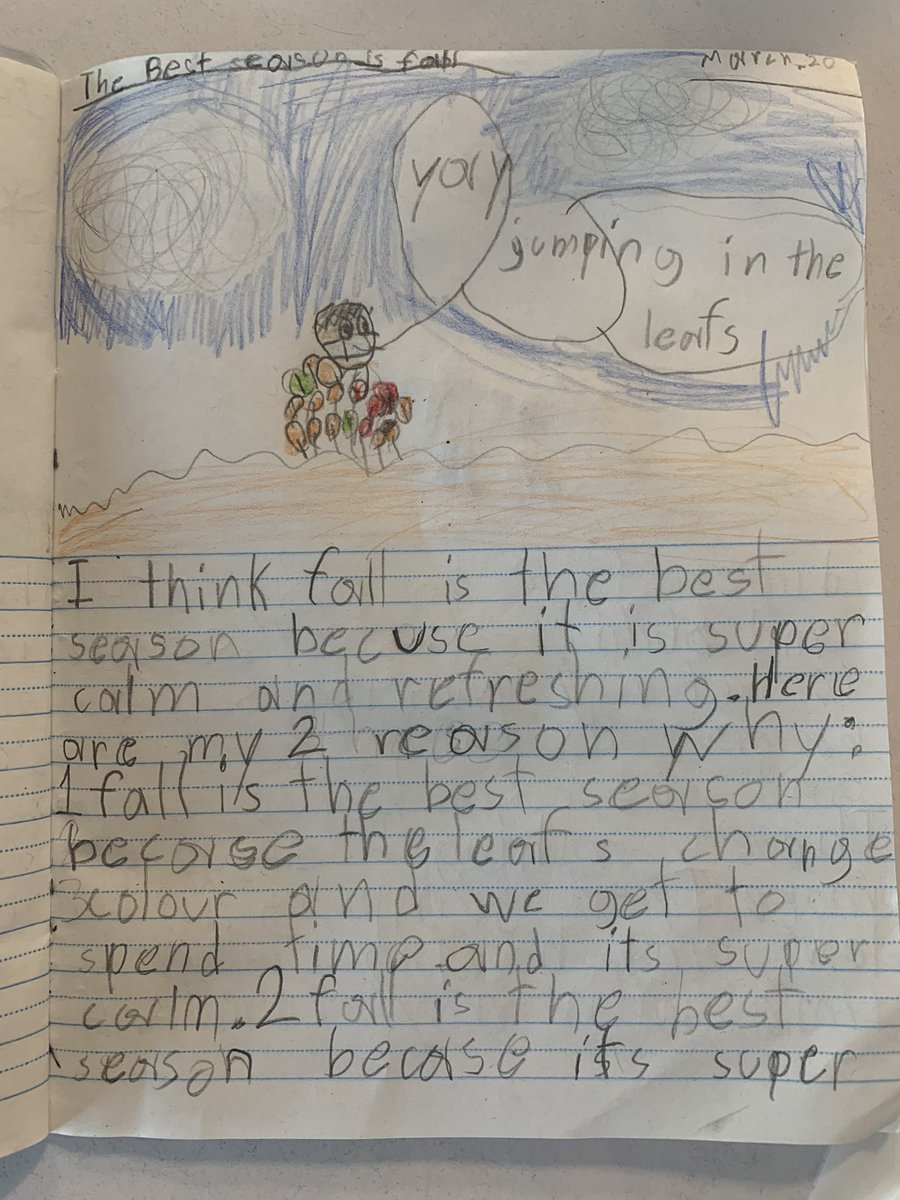 The Best season is fall
March.20
yay
jumping in the
leafs
I think fall is the best
season becuse it is super
calm and refreshing. Here
are my 2 reason why:
1 fall is the best season
becarse the leaf s change
colour and we get to
spend time and its super
calm. 2 fall is the best
season becase its super